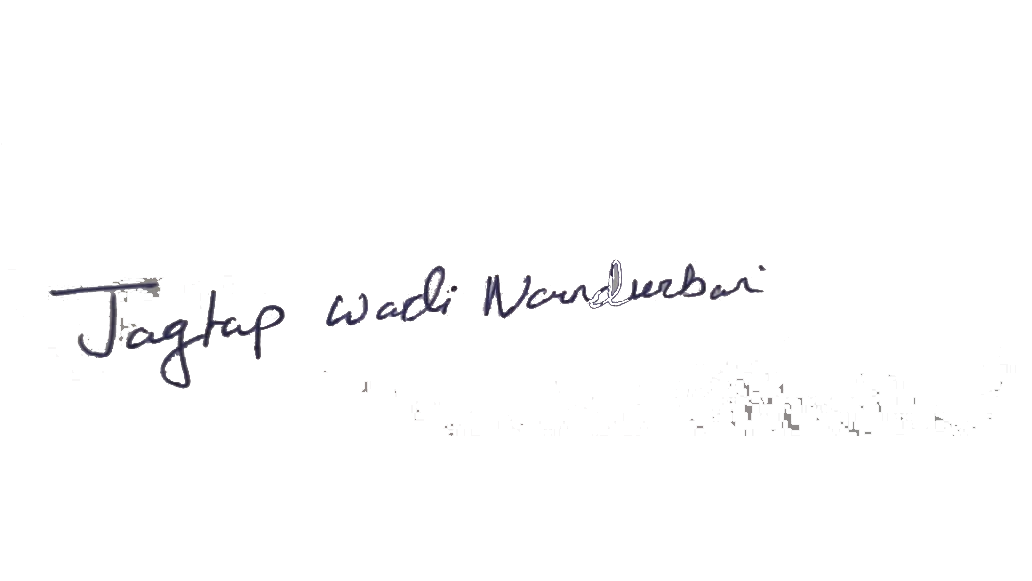 Jagtap wadi Nandurbar